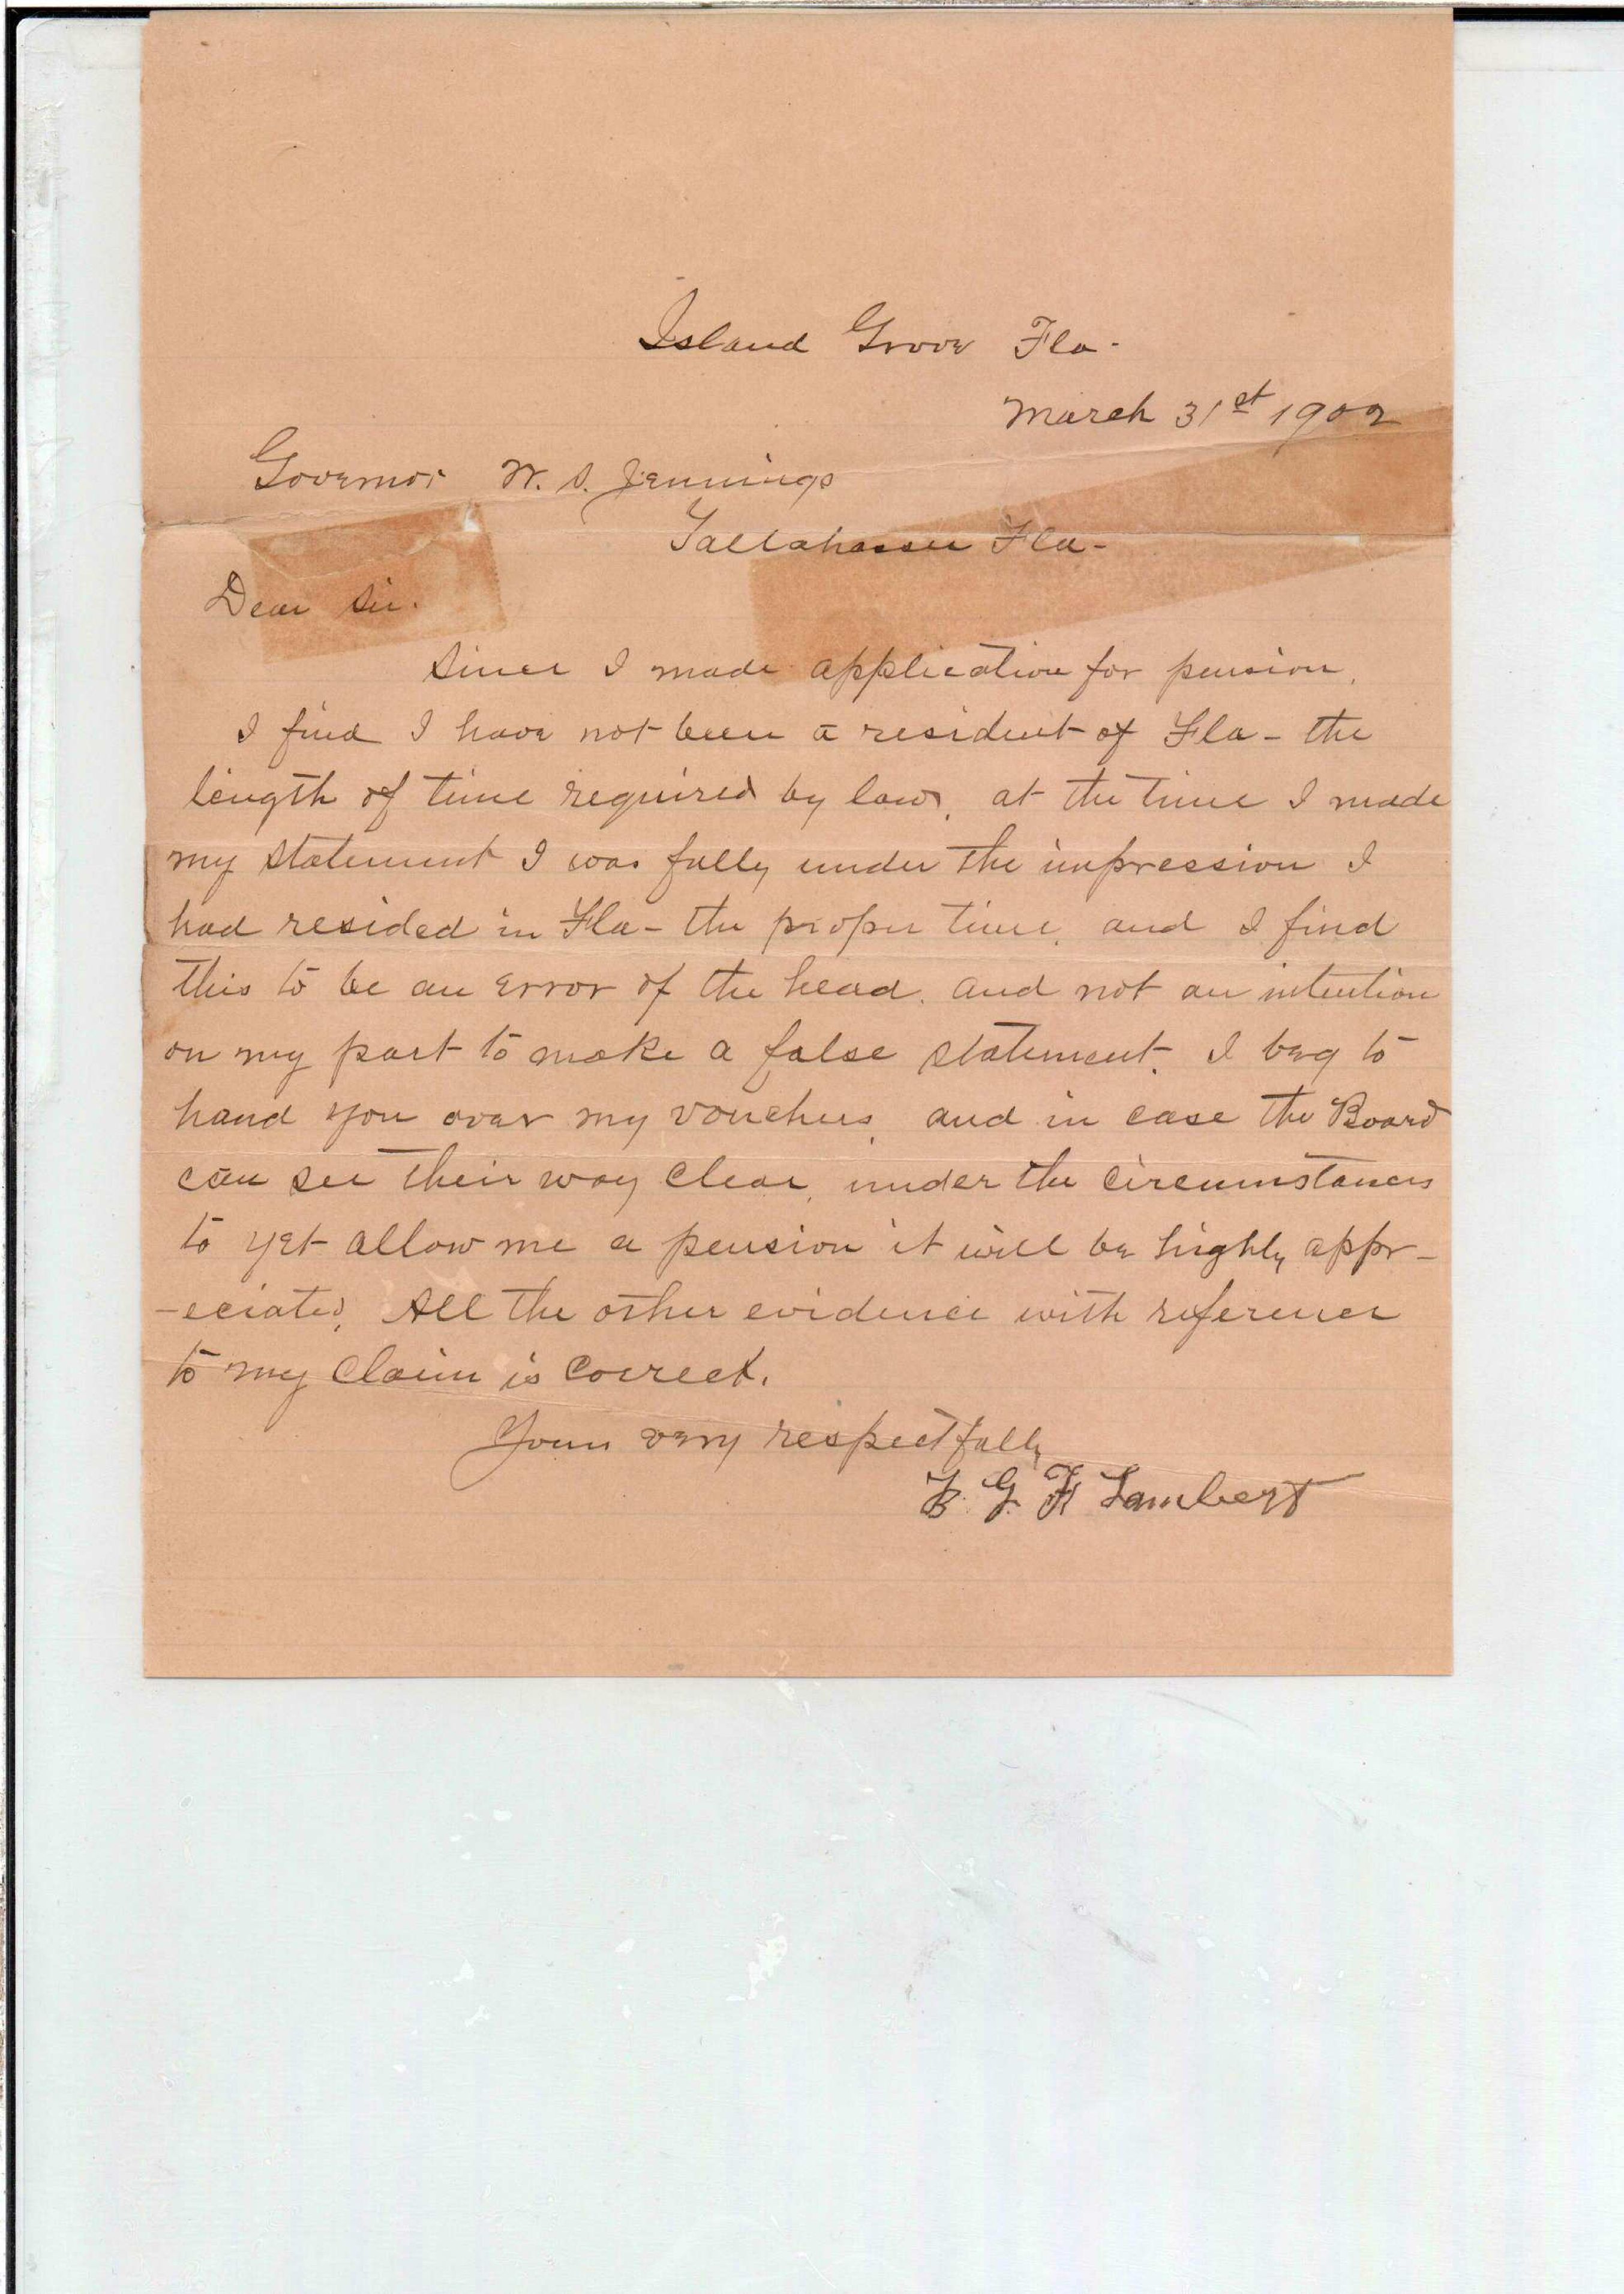 Island Grove Fla-
March 31st 1902
Governor W. S. Jennings
Tallahassee Fla-
Dear Sir.
Since I made application for pension,
I find I have not been a resident of Fla- the
length of time required by law, at the time I made
my statement I was fully under the impression I
had resided in Fla- the proper time, and I find
this to be an error of the head, and not an intention
on my part to make a false statement. I beg to
hand you over my vouchers, and in case the Board
can see their way clear, under the circumstances
to yet allow me a pension it will be highly appr-
-eciated, All the other evidence with reference
to my claim is correct.
Yours very respectfully
G. Lambert